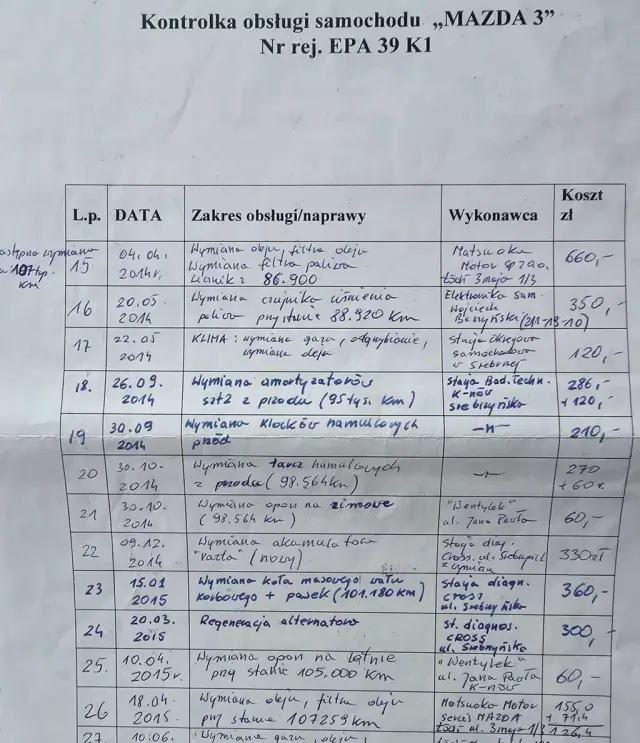 Kontrolka obsługi samochodu „MAZDA 3”
Nr rej. EPA 39 K1
L.p. DATA Zakres obsługi/naprawy Wykonawca Koszt zł
15 04.04. 2014r. Wymiana oleju, filtra oleju
Wymiana filtra paliwa
Licznik: 86.900
Matsuoka
Motor Sp. z o.o.
Łódź 3 maja 1/3
660,-
107 tyś.
km
16 20.05. 2014 Wymiana czujnika ciśnienia
paliwa przy stanie 88.920 km
Elektronika Sam.
Wojciech
(211-13-10)
350,-
17 22.05 2014 KLIMA: wymiana gazu, odgrzybianie,
wymiana oleju
Stacja Okręgowa
samochodowa
120,-
18. 26.09. 2014 Wymiana amortyzatorów
szt 2 z przodu (95 tyś. km)
Stacja Bad. Techn.
K-nów
Srebrzyńska
286,-
+ 120,-
19 30.09 2014 Wymiana klocków hamulcowych
przód
-"-
210,-
20 30.10. 2014 Wymiana tarcz hamulcowych
z przodu (98.564 km)
-"-
270
+ 60 r.
21 30.10. 2014 Wymiana opon na zimowe
(98.564 km)
"Wentylek"
ul. Jana Pawła
60,-
22 09.12. 2014 Wymiana akumulatora
"Varta" (nowy)
Stacja diag.
Cross. ul.
z wymianą
330 zł
23 15.01 2015 Wymiana koła pasowego wału
korbowego + pasek (101.180 km)
Stacja diagn.
CROSS
ul. Srebrzyńska
360,-
24 20.03. 2015 Regeneracja alternatora
St. diagnos.
CROSS
ul. Srebrzyńska
300,-
25. 10.04. 2015r. Wymiana opon na letnie
przy stanie 105.000 km
"Wentylek"
ul. Jana Pawła
K-nów
60,-
26 18.04. 2015. Wymiana oleju, filtra oleju
przy stanie 107259 km
Matsuoka Motor
serwis MAZDA
Łódź ul. 3 maja 1/3
155,0
+ 71,4
126,4
27. 10.06. Wymiana gazu, oleju,